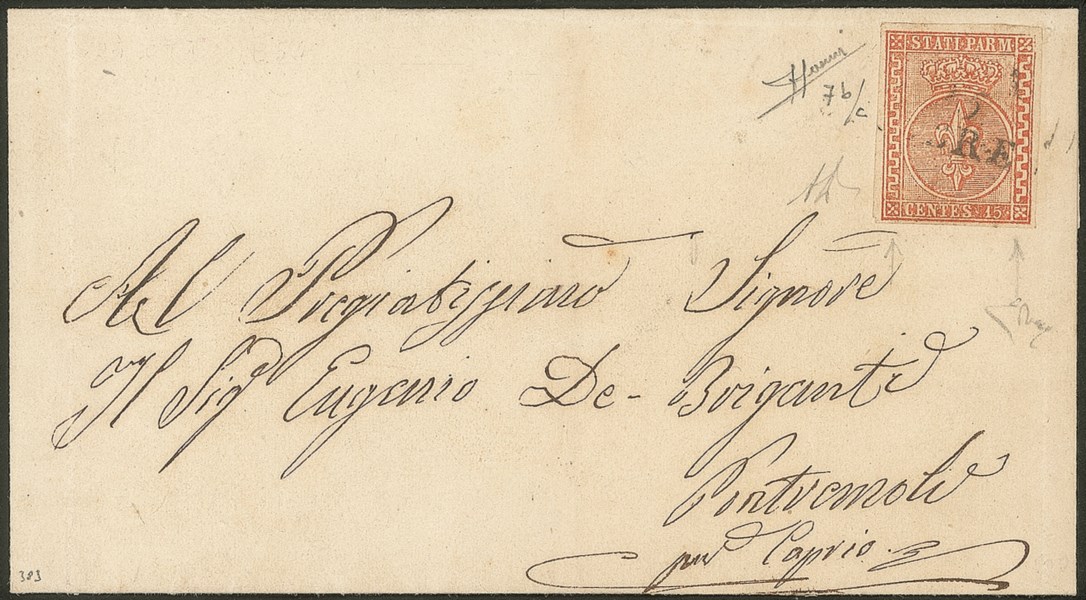 STATI PARM
R.E
CENTES. 15
7b/c
Al Pregiatissimo Signore
Il Sigr Eugenio De-Briganti
Pontremoli
per Caprio.
383